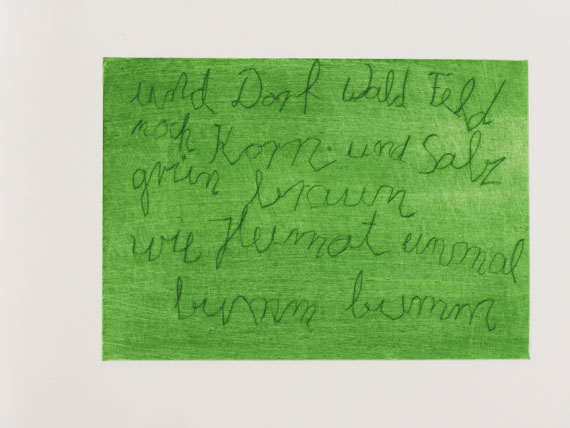 und Dorf Wald Feld
noch Korn und Salz
grün braun
wie Heimat einmal
bumm bumm